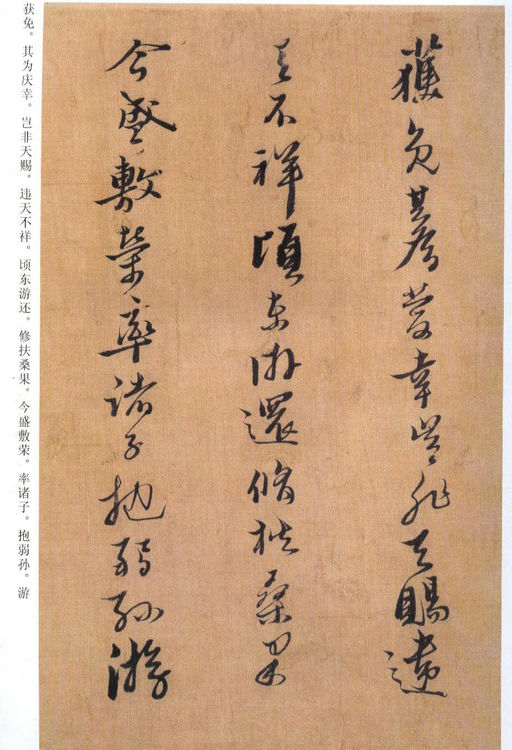 獲免其為慶幸豈非天賜違
天不祥頃東游還脩扶桑果
今盛敷榮率諸子抱弱孫游
获免。其为庆幸。岂非天赐。违天不样。顷东游还。修扶桑果。今盛敷荣。率诸子。抱弱孙。游